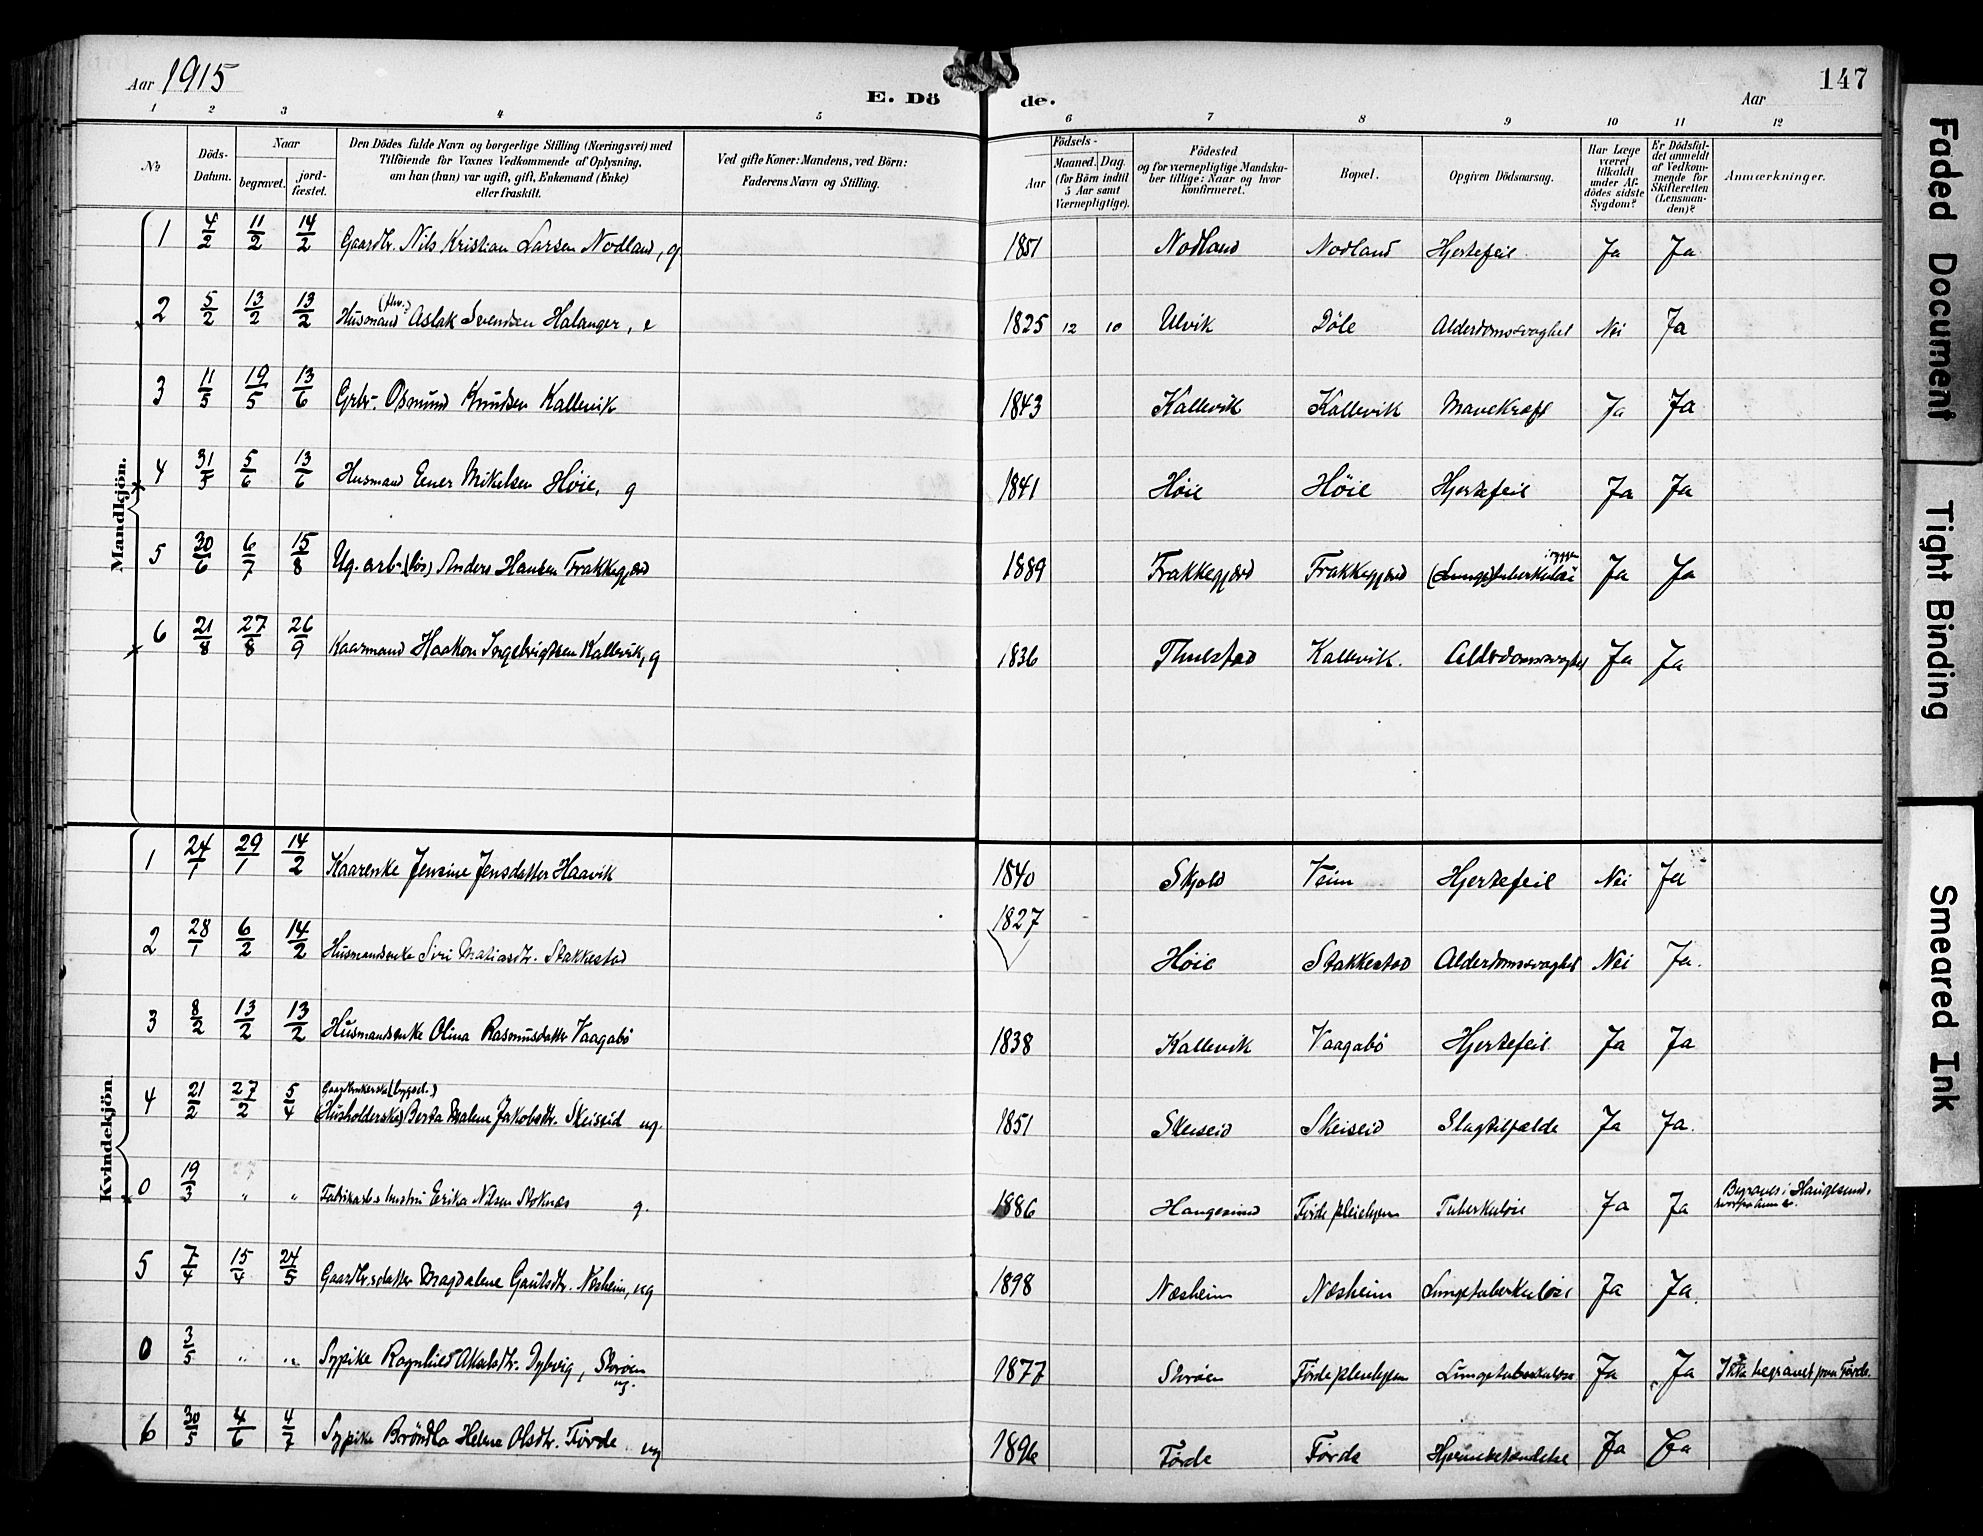 Aar 1915
E. Dö
de.
Aar
147
1 2 3 4 5 6 7 8 9 10 11 12
№
Döds-Datum.
Naar
begravet.
jord-fæstet.
Den Dödes fulde Navn og borgerlige Stilling (Næringsvei) med
Tilföiende for Voxnes Vedkommende af Oplysning,
om han (hun) var ugift, gift, Enkemand (Enke)
eller fraskilt.
Ved gifte Koner: Mandens, ved Börn:
Faderens Navn og Stilling.
Födsels-
Aar
Maaned. Dag.
(for Börn indtil
5 Aar samt
Værnepligtige).
Födested
og for værnepligtige Mandska-
ber tillige: Naar og hvor
konfirmeret.
Bopæl.
Opgiven Dödsaarsag.
Har Læge
været
tilkaldt
under Af-
dödes sidste
Sygdom?
Er Dödsfal-
det anmeldt
af Vedkom-
mende for
Skifteretten
(Lensman-
den)?
Anmærkninger.
Mandkjön.
1 4/2 11/2 14/2 Gaardbr. Nils Kristian Larsen Nodland, g. 1851 Nodland Nodland Hjertefeil Ja Ja
2 5/2 13/2 13/2 Husmand (fhv.) Aslak Svendsen Halanger, e 1825 12 10 Ulvik Döle Alderdomssvaghet Nei Ja
3 11/5 19/5 13/6 Grbr. Osmund Knudsen Kallevik 1843 Kallevik Kallevik Mavekræft Ja Ja
4 31/5 5/6 13/6 Husmand Ener Mikelsen Höie, g 1841 Höie Höie Hjertefeil Ja Ja
5 30/6 6/7 15/8 Ug. arb. (løs) Anders Hansen Frakkegjerd 1889 Frakkegjerd Frakkegjerd (Lunge)tuberkulose i ryggen Ja Ja
6 21/8 27/8 26/9 Kaarmand Haakon Ingebrigtsen Kallevik, g 1836 Thuestad Kallevik. Alderdomssvaghet Ja Ja
Kvindekjön.
1 24/1 29/1 14/2 Kaarenke Jensine Jensdatter Haavik 1840 Skjold Veim Hjertefeil Nei Ja
2 28/1 6/2 14/2 Husmandsenke Siri Matiasdtr. Stakkestad 1827 Höie Stakkestad Alderdomssvaghet Nei Ja.
3 8/2 13/2 13/2 Husmandsenke Olina Rasmusdatter Vaagabö 1838 Kallevik Vaagabö Hjertefeil Ja Ja
4 21/2 27/2 5/4 Gaardbrukerske (bygsel.)
(Husholderske) Berta Malene Jakobsdtr. Skeiseid ug. 1851 Skeiseid Skeiseid Slagtilfælde Ja Ja.
0 19/3 " " Fabrikarb.s hustru Erika Nilsen Stoknes g. 1886 Haugesund Förde pleiehjem Tuberkulose Ja Ja Begraves i Haugesund,
5 7/4 15/4 24/5 Gaardbr.sdatter Magdalene Gautsdtr. Næsheim, ug 1898 Næsheim Næsheim Lungetuberkulose Ja Ja.
0 3/5 " " Sypike Ragnhild Akselsdtr. Dybvig, Storøen ug. 1877 Storøen Förde pleiehjem Lungetuberkulose Ja Ja Ikke begravet paa Förde.
6 30/5 4/6 4/7 Sypike Bröndla Helene Olsdtr. Förde ug 1896 Förde Förde Hjernebetændelse Ja Ja
Faded Document
Tight Binding
Smeared Ink